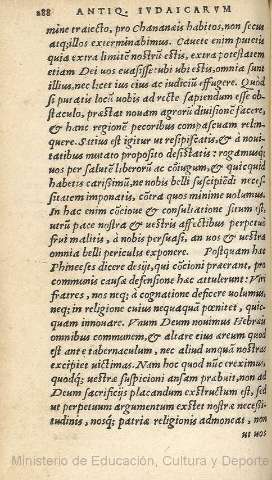 288 ANTIQ. IVDAICARVM
mine traiecto, pro Chananais habitos, non secus
atq; illos exterminabimus. Cauete enim putetis
quia extra limitē nostrū estis, extra potestatem
etiam Dei uos euasisse: ubi ubi estis, omnia sunt
illius, nec licet ius eius ac iudiciū effugere. Quod
si putatis locū uobis ad recte sapiendum esse ob-
staculo, præstat nouam agrorū diuisionē facere,
& hanc regionē pecoribus compascuam relin-
quere. Satius est igitur ut resipiscatis, & à noui-
tatibus mutato proposito desistatis: rogamusq;
uos per salutē liberorū ac cōiugum, & quicquid
habetis carissimū, ne nobis belli suscipiēdi neces-
sitatem imponatis, cōtra quos minime uolumus.
In hac enim cōcione & consultatione situm est,
utrū pace nostra & uestris affectibus perpetuò
frui malitis, à nobis persuasi, an uos & uestra
omnia belli periculis exponere. Postquam hæc
Phineeses dicere desijt, qui cōcioni præerant, pro
communis causæ defensione hæc attulerunt: Viri
fratres, nos neq; à cognatione deficere volumus,
neq; in religione cuius nequaquā pœnitet, quic-
quam innouare. Vnum Deum nouimus Hebræis
omnibus communem, & altare eius æreum quod
est ante tabernaculum, nec aliud unquā nostras
excipiet uictimas. Nam hoc quod nūc creximus,
quodq; uestræ suspicioni ansam præbuit, non ad
Deum sacrificijs placandum exstructum est, sed
ut perpetuum argumentum exstet nostræ necessi-
tudinis, nosq; patriæ religionis admoneat, non
ut uos
Ministerio de Educación, Cultura y Deporte